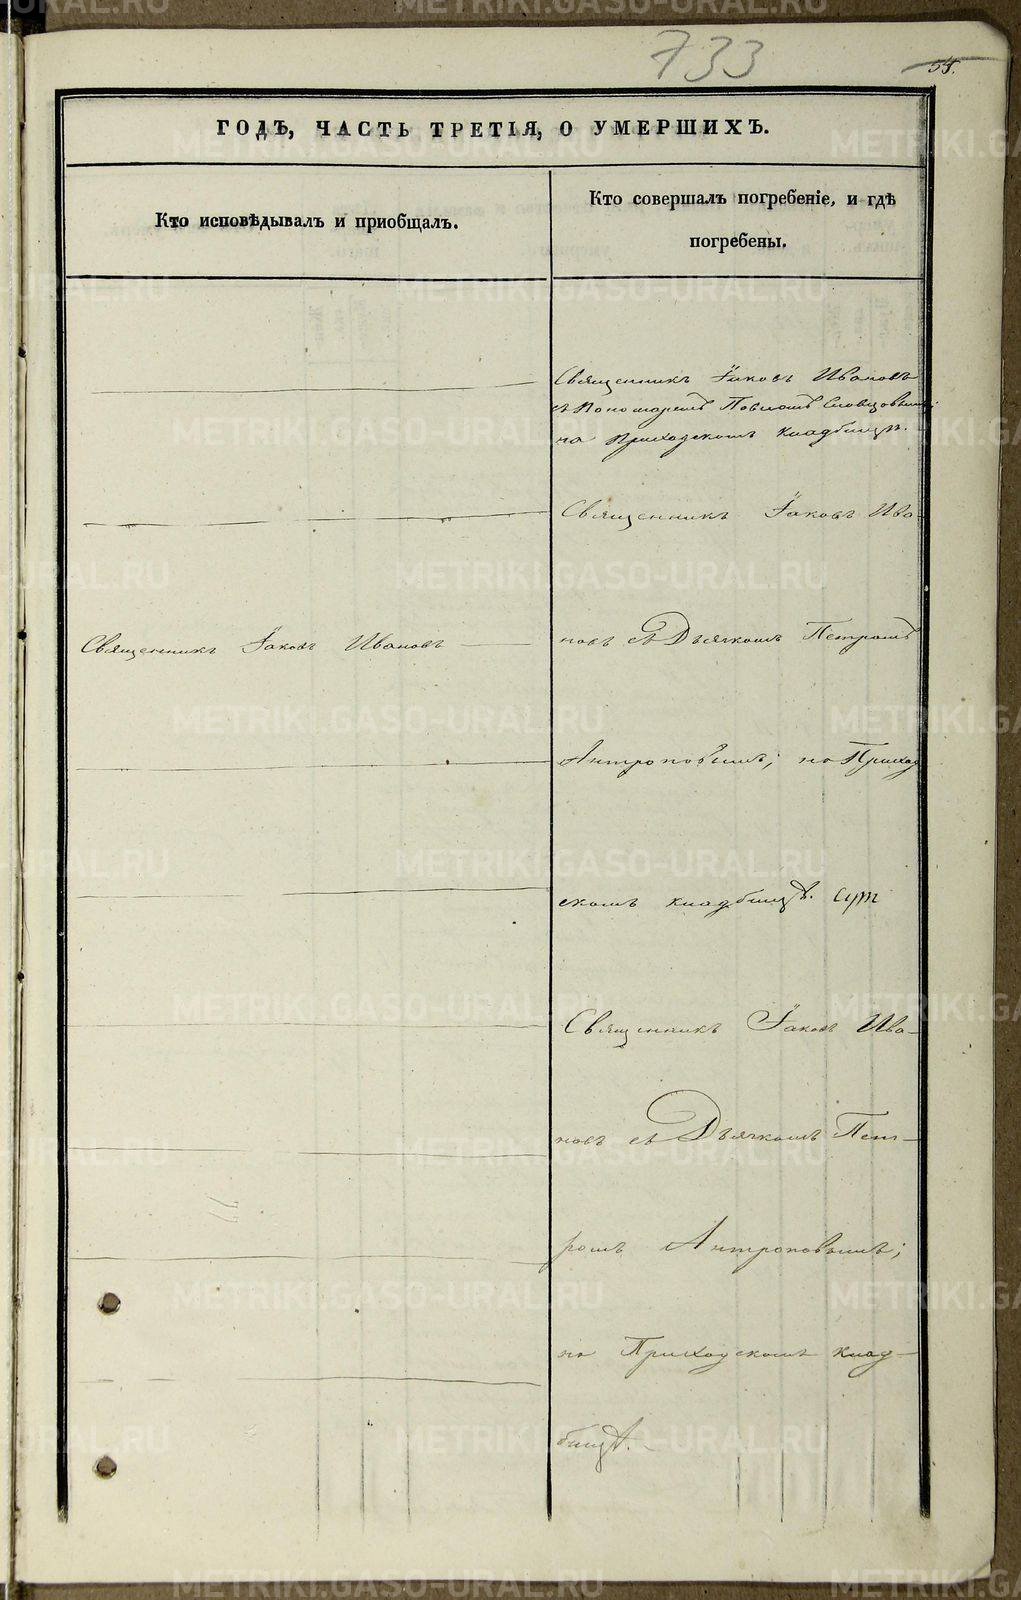 733
ГОДЪ, ЧАСТЬ ТРЕТІЯ, О УМЕРШИХЪ.
Кто исповѣдывалъ и приобщалъ.
Кто совершалъ погребеніе, и гдѣ
погребены.
Священникъ Іаковъ Ивановъ
съ Пономаремъ Павломъ Словцовымъ;
на Приходскомъ кладбищѣ.
Священникъ Іаковъ Ива-
Священникъ Іаковъ Ивановъ
новъ съ Дьячкомъ Петромъ
Антроповымъ; на Приход
скомъ кладбищѣ.
Священникъ Іаковъ Ива-
новъ съ Дьячкомъ Пет-
ромъ Антроповымъ;
на Приходскомъ клад-
бищѣ.
METRIKI.GASO-URAL.RU